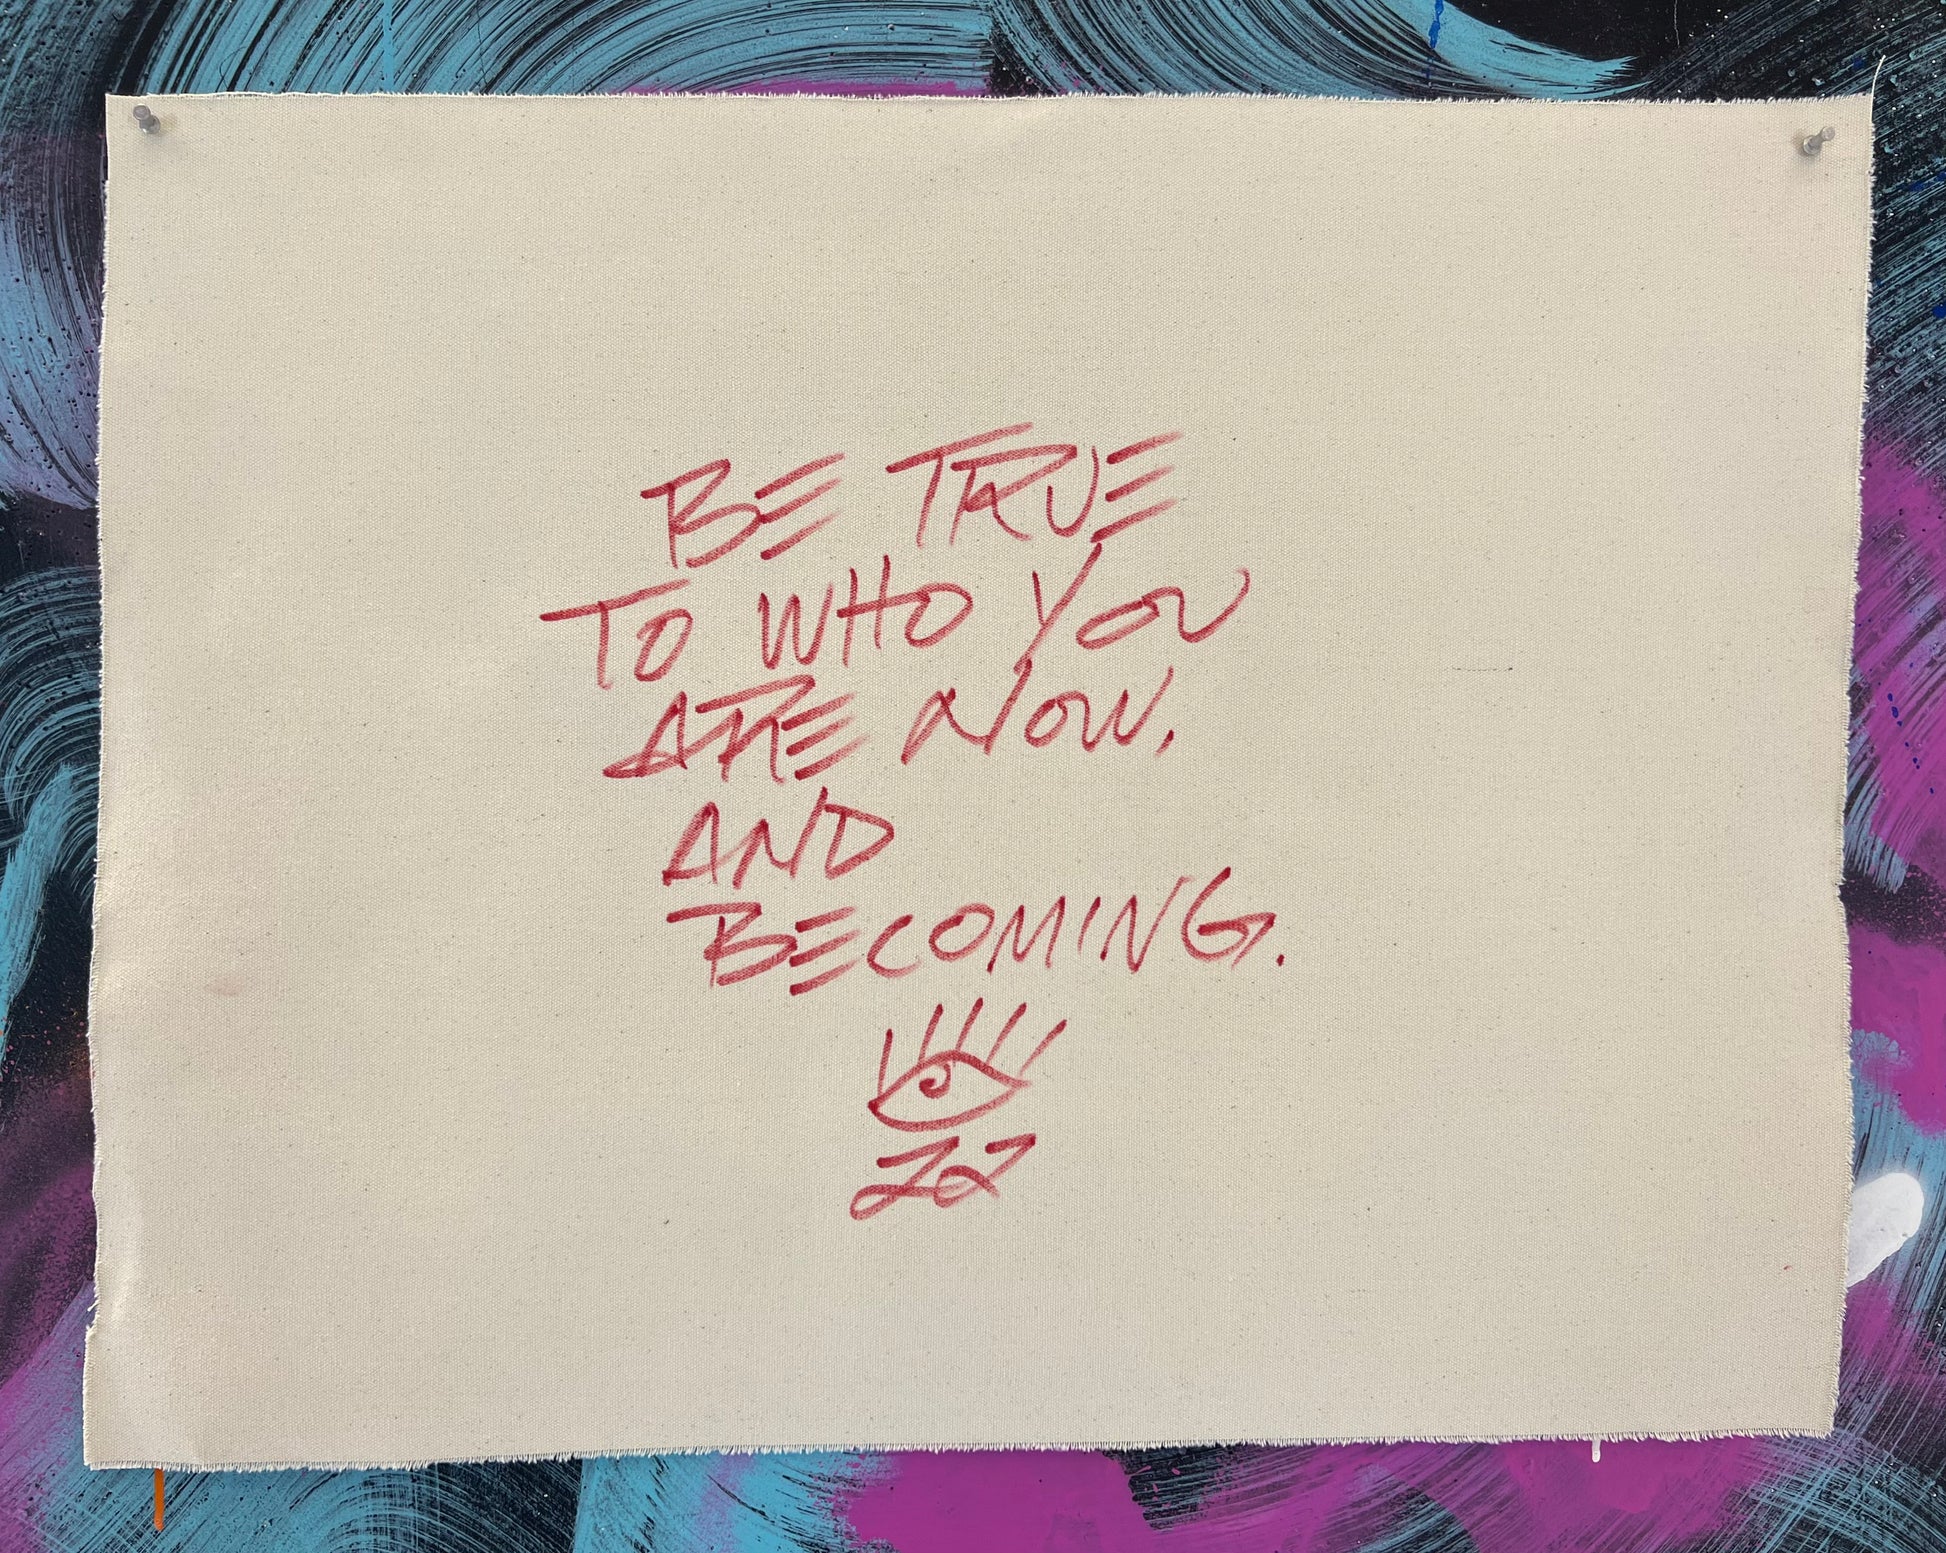 BE TRUE
TO WHO YOU
ARE NOW,
AND
BECOMING.